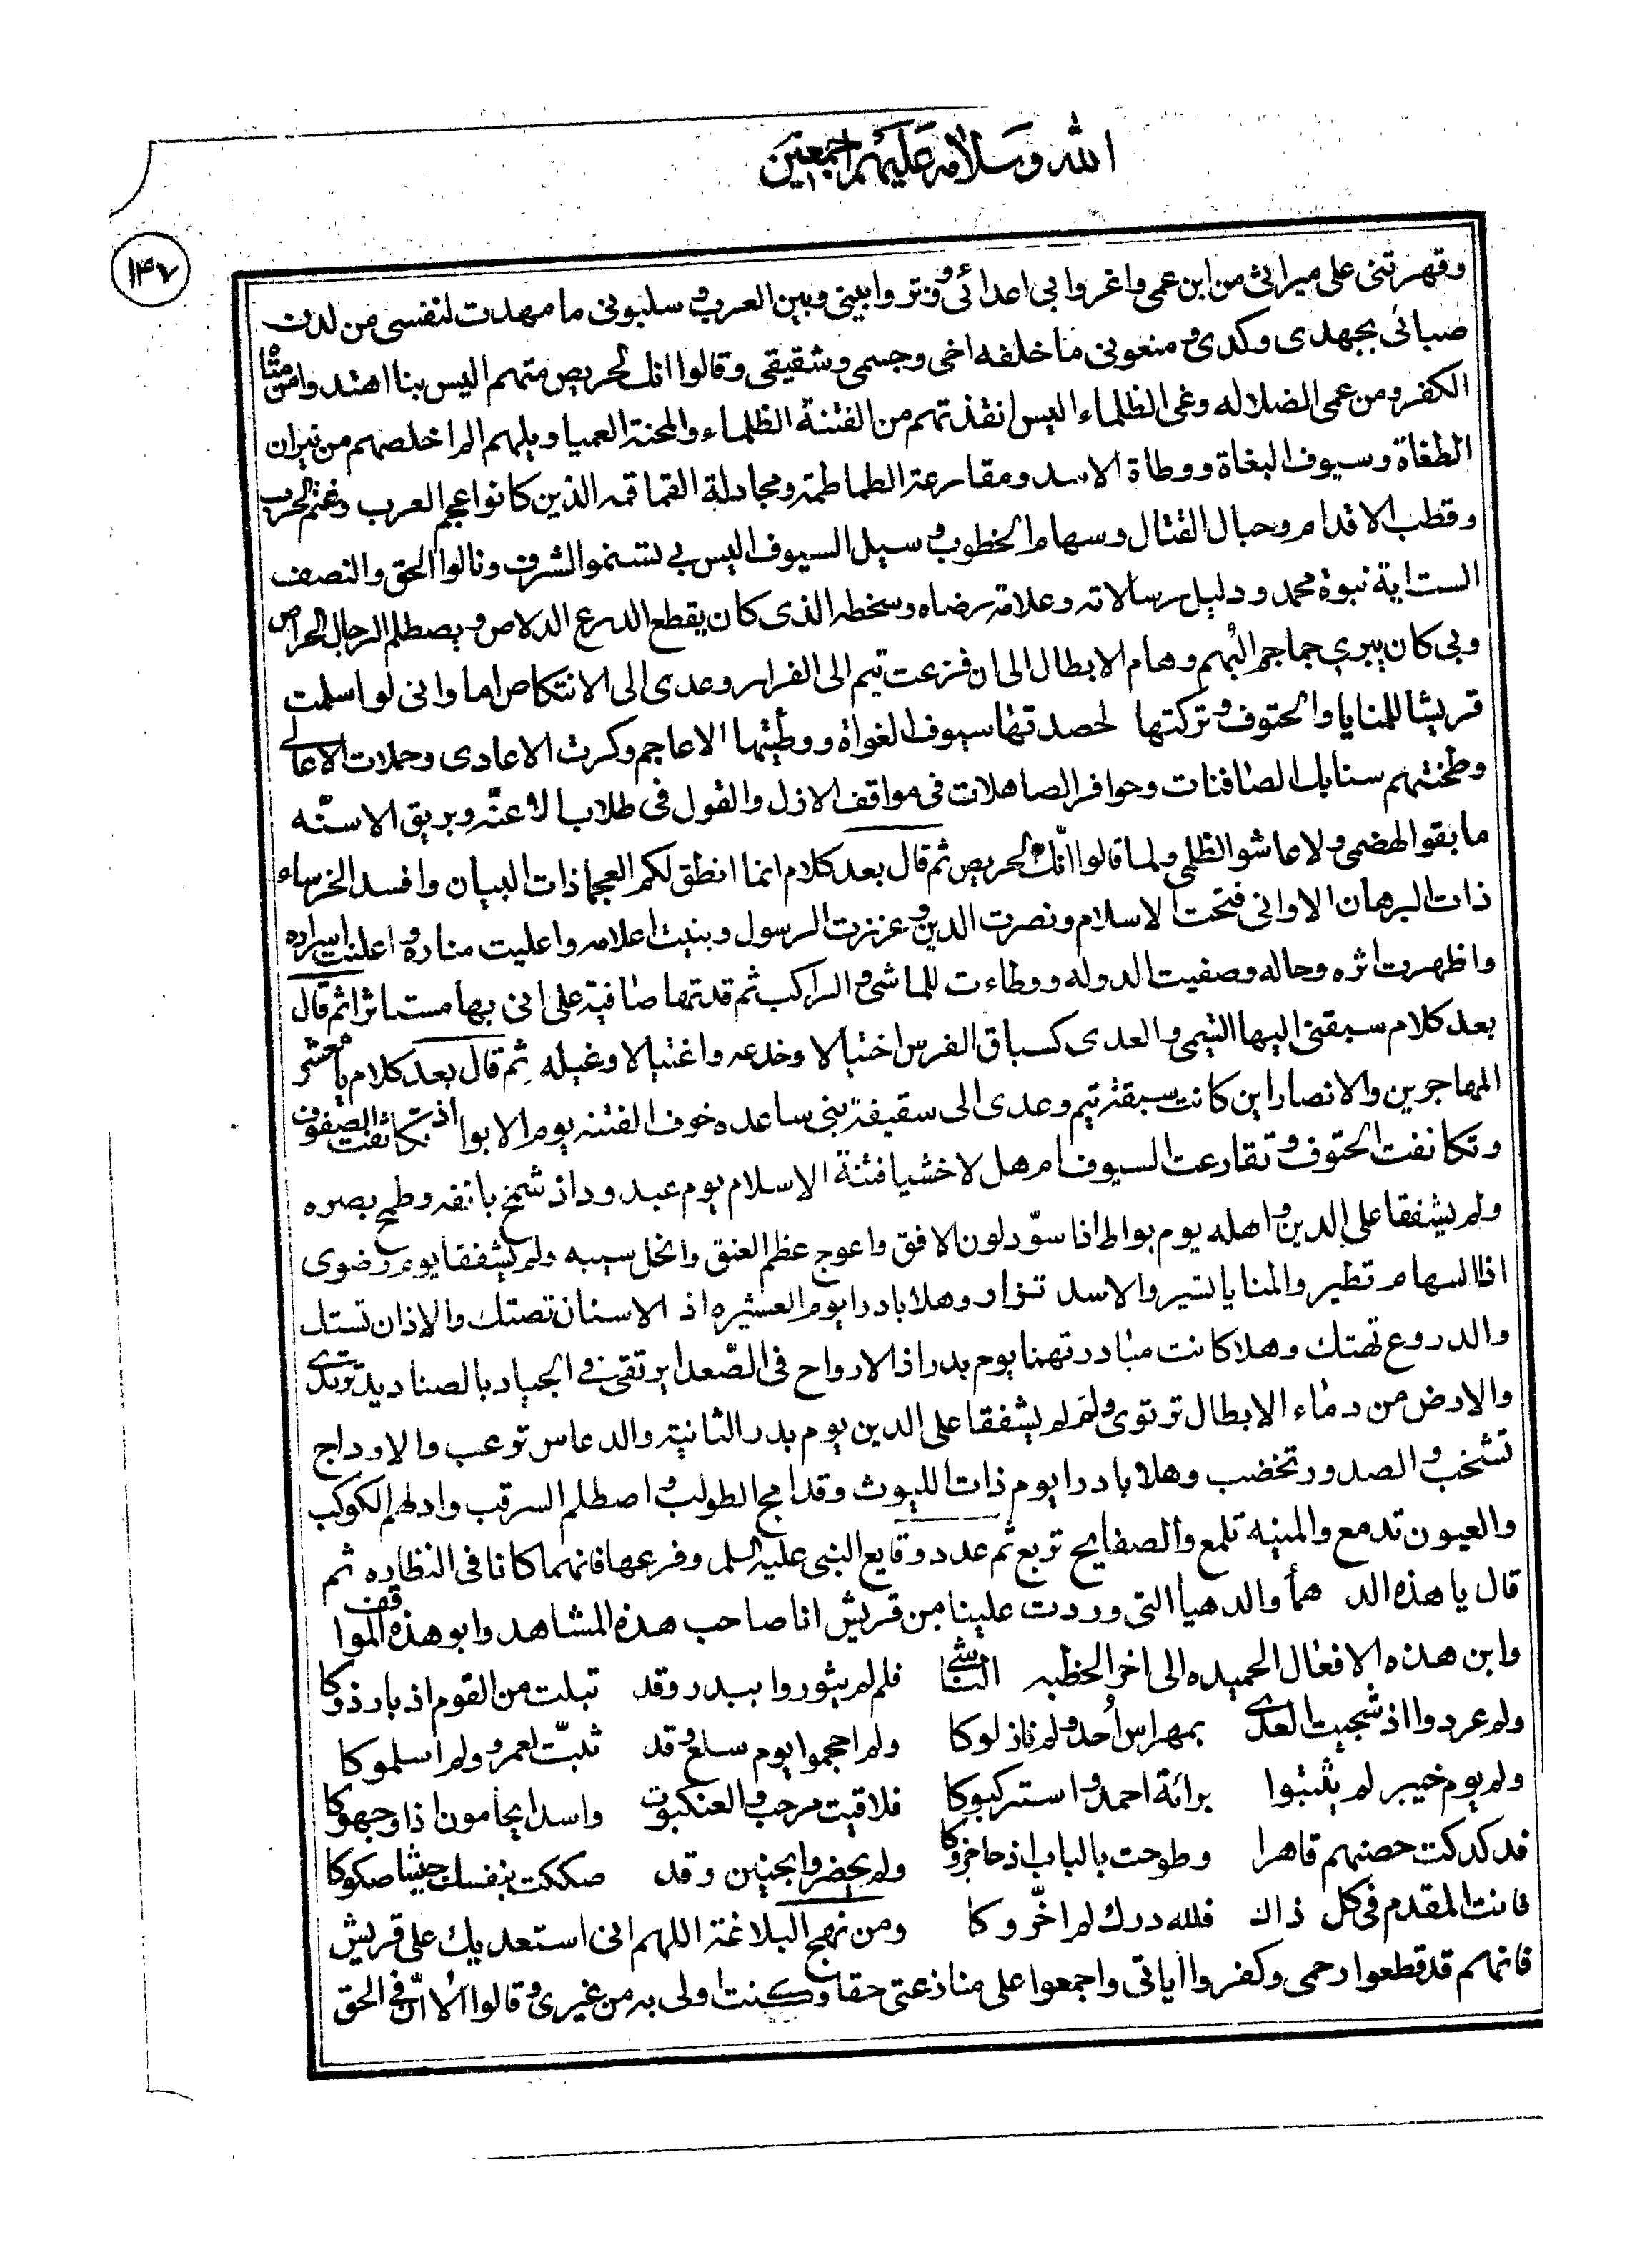 الله وسلامه عليهم اجمعين
۱۴۷
وقهرتنى على ميراثى من ابن عمى واغروا بى اعدائى ووتروا بينى وبين العرب وسلبونى ما مهدت لنفسى من لدن
صبائى بجهدى وكدى ومنعونى ما خلفه اخى وجسمى وشقيقى وقالوا انك لحريص متهم اليس بنا اهتدوا من متاه
الكفر ومن عمى الضلاله وغى الظلماء اليس انقذتهم من الفتنة الظلماء والمحنة العميا ويلهم الم اخلصهم من نيران
الطغاة وسيوف البغاة ووطاة الاسد ومقارعة الطماطمة ومجادلة القماقمه الذين كانوا عجم العرب وغنم الحرب
وقطب الاقدام وحبال القتال وسهام الخطوب وسيل السيوف اليس بى تسنموا الشرف ونالوا الحق والنصف
الست اية نبوة محمد ودليل رسالاته وعلامة رضاه وسخطه الذى كان يقطع الدرع الدلاص ويصطلم الرجال الحراص
وبى كان يبرى جماجم البهم وهام الابطال الى ان فزعت تيم الى الفرار وعدى الى الانتكاص اما وانى لو اسلمت
قريشا للمنايا والحتوف وتركتها لحصدتها سيوف الغواة ووطئتها الاعاجم وكرت الاعادى وحملات الاعالى
وطحنتهم سنابك الصافنات وحوافر الصاهلات فى مواقف الازل والقول فى طلاب الاعنّه وبريق الاسنّه
ما بقوا لهضمى ولا عاشوا لظلمى ولما قالوا انّك لحريص ثم قال بعد كلام انما انطق لكم العجما ذات البيان وافسد الخرساء
ذات البرهان الا وانى فتحت الاسلام ونصرت الدين وعززت الرسول وبنيت اعلامه واعليت مناره واعلنت اسراره
واظهرت اثره وحاله وصفيت الدوله ووطاءت للماشى والراكب ثم قدتها صافية على انى بها مستاثرا ثم قال
بعد كلام سبقنى اليها التيمى والعدى كسباق الفرس اختيالا وخدعه واغتيالا وغيله ثم قال بعد كلام يا معشر
المهاجرين والانصار اين كانت سبقة تيم وعدى الى سقيفة بنى ساعده خوف الفتنه يوم الابوا اذ تكاثفت الصفوف
وتكانفت الحتوف وتقارعت السيوف ام هل لا خشيا فتنة الاسلام يوم عبد ود اذ شمخ بانفه وطمح بصره
ولم يشفقا على الدين واهله يوم بواط اذا سوّد لون الافق واعوج عظم العنق وانحل سيبه ولم يشفقا يوم رضوى
اذا السهام تطير والمنايا تسير والاسد تزار وهلا بادرا يوم العشيره اذ الاسنان تصتك والاذان تستك
والدروع تهتك وهلا كانت مبادرتهما يوم بدر اذ الارواح فى الصّعدا يرتقى والجياد بالصناديد تردى
والارض من دماء الابطال ترتوى ولم لم يشفقا على الدين يوم بدر الثانية والدعاس ترعب والاوداج
تشخب والصدور تخضب وهلا بادرا يوم ذات الليوث وقد امج الطولب واصطلم السرقب وادلهم الكوكب
والعيون تدمع والمنيه تلمع والصفايح تربع ثم عدد وقايع النبى عليه السلم وفرعها فانهما كانا فى النظاره ثم
قال يا هذه الد همأ والدهيا التى وردت علينا من قريش انا صاحب هذه المشاهد وابو هذه المواقف
وابن هذه الافعال الحميده الى اخر الخطبه الناشى فلم لم يثوروا ببدر وقد تبلت من القوم اذ بارزوكا
ولم عردوا اذ شجيت العدى بمهراس اُحد ولم نازلوكا ولم احجموا يوم سلع وقد ثبتّ لعمرو ولم اسلموكا
ولم يوم خيبر لم يثبتوا برائة احمد واستركبوكا فلاقيت مرحب والعنكبوت واسدا يحامون اذ اوجهوكا
فدكدكت حصنهم قاهرا وطوحت بالباب اذ حاجزوكا ولم يحضروا بحنين وقد صككت بنفسك جيشا صكوكا
فانت المقدم فى كل ذاك فلله درك لم اخّروكا ومن نهج البلاغة اللهم انى استعديك على قريش
فانهم قد قطعوا رحمى وكفروا اياتى واجمعوا على منازعتى حقا وكنت اولى به من غيرى وقالوا الا انّ فى الحق